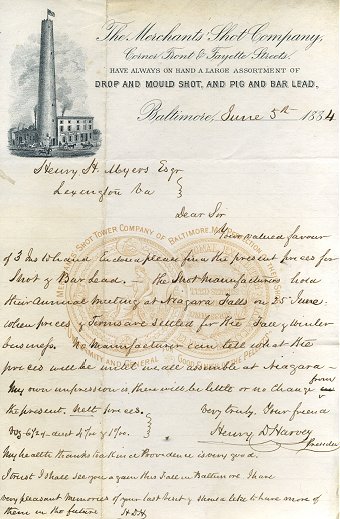 The Merchants' Shot Company,
Corner Front & Fayette Streets.
HAVE ALWAYS ON HAND A LARGE ASSORTMENT OF
DROP AND MOULD SHOT, AND PIG AND BAR LEAD,
Baltimore, June 5th 1884
Henry H. Myers Esqr
Lexington Va
Dear Sir
Your valued favour
of 3 Inst to hand Enclosed please find the present prices for
Shot & Bar Lead. — the Shot Manufacturers hold
their Annual Meeting at Niagara Falls on 25 June.
when prices & Terms are settled for the Fall & Winter
business. No manufacturer can tell what the
prices will be until we all assemble at Niagara —
My own impression is, there will be little or no Change from
the present, nett prices.
Very truly, Your friend
Henry D. Harvey
President
My health thanks to a kind Providence is very good.
I trust I shall see you again this Fall in Baltimore. I have
very pleasant memories of your last visit & should like to have more of
them in the future H.D.H.
SHOT TOWER COMPANY OF BALTIMORE